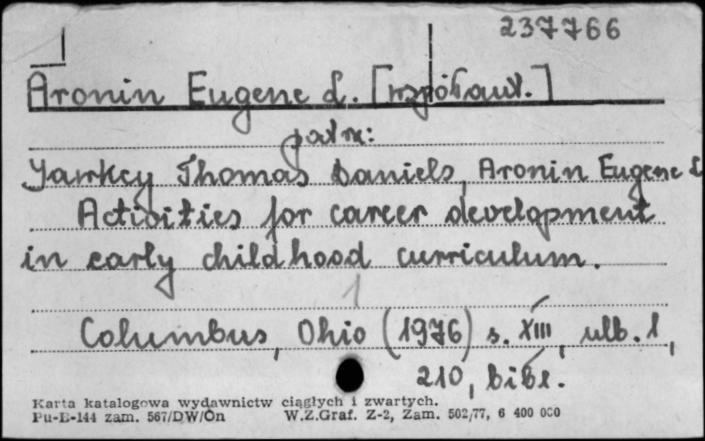 237766
Aronin Eugene L. [współaut.]
patrz:
Yawkey Thomas Daniels, Aronin Eugene L
Activities for career development
in early childhood curriculum.
Columbus, Ohio (1976) s. XIII, ulb. 1,
210, bibl.
Karta katalogowa wydawnictw ciągłych i zwartych.
Pu-E-144 zam. 567/DW/On W.Z.Graf. Z-2, Zam. 502/77, 6 400 000